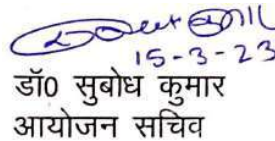 15-3-23
डॉ0 सुबोध कुमार
आयोजन सचिव